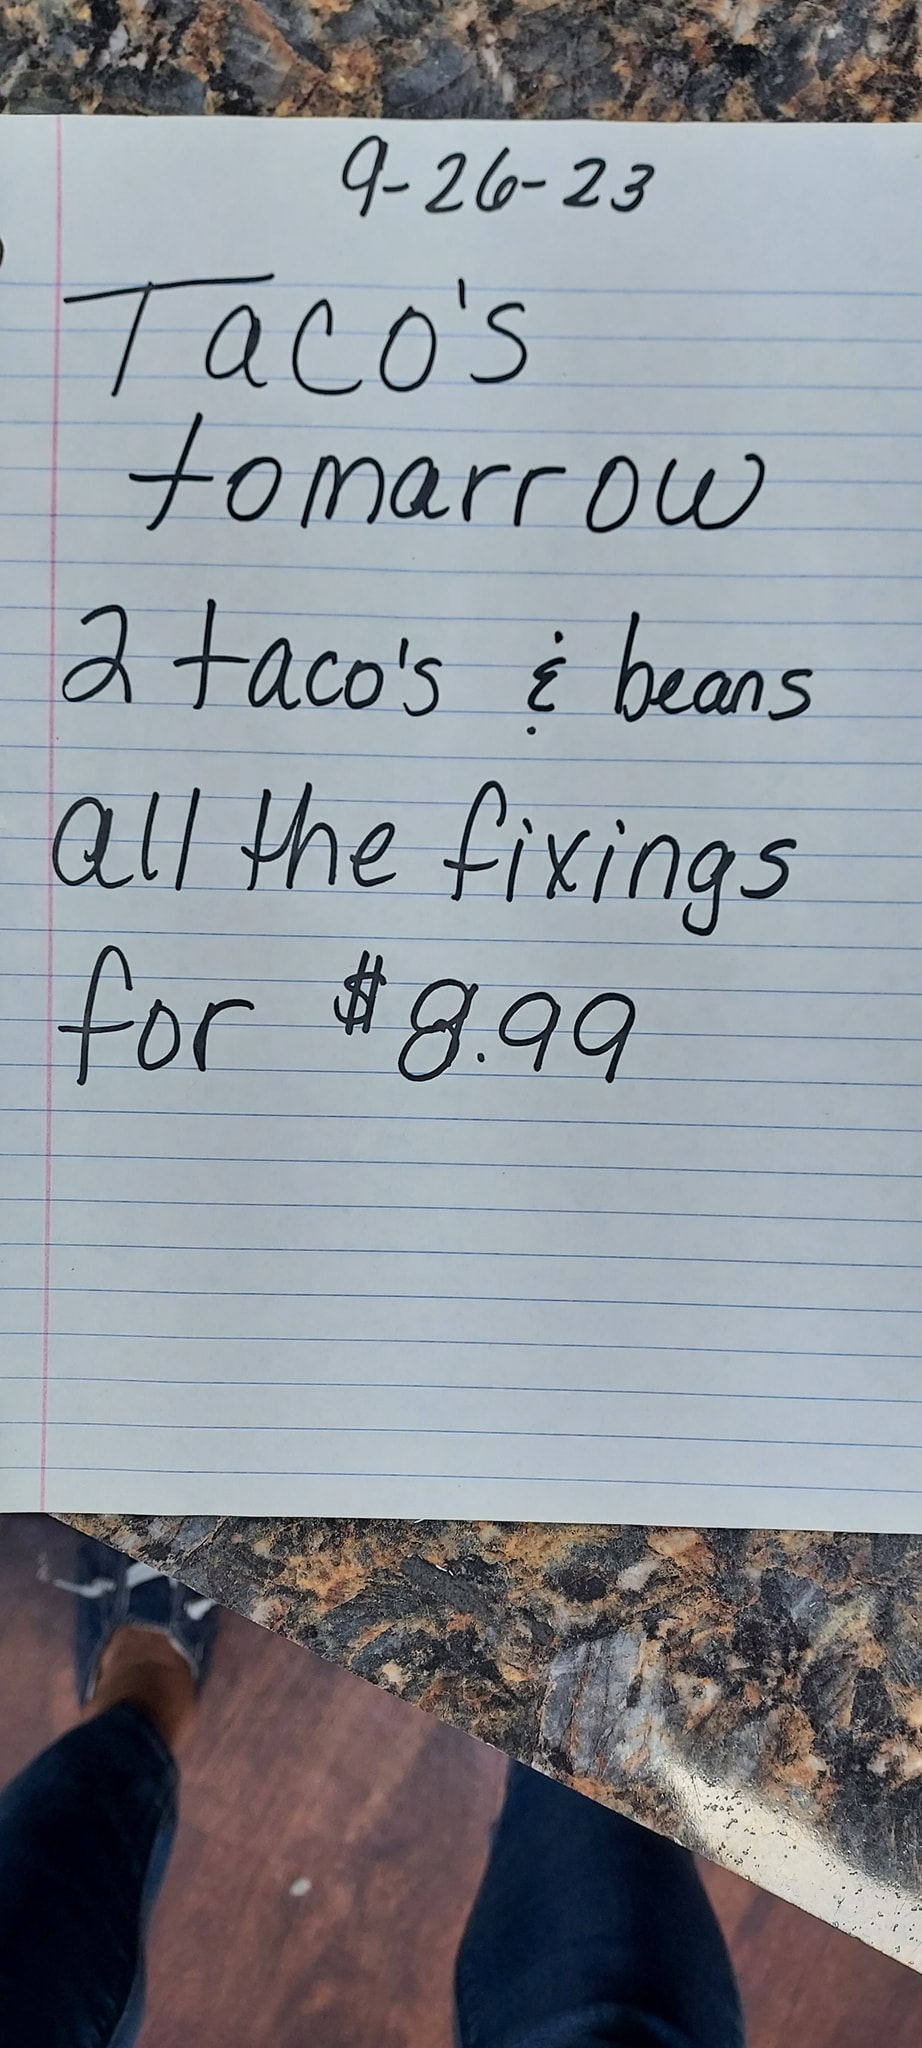 9-26-23
Taco's
tomarrow
2 taco's & beans
all the fixings
for $8.99